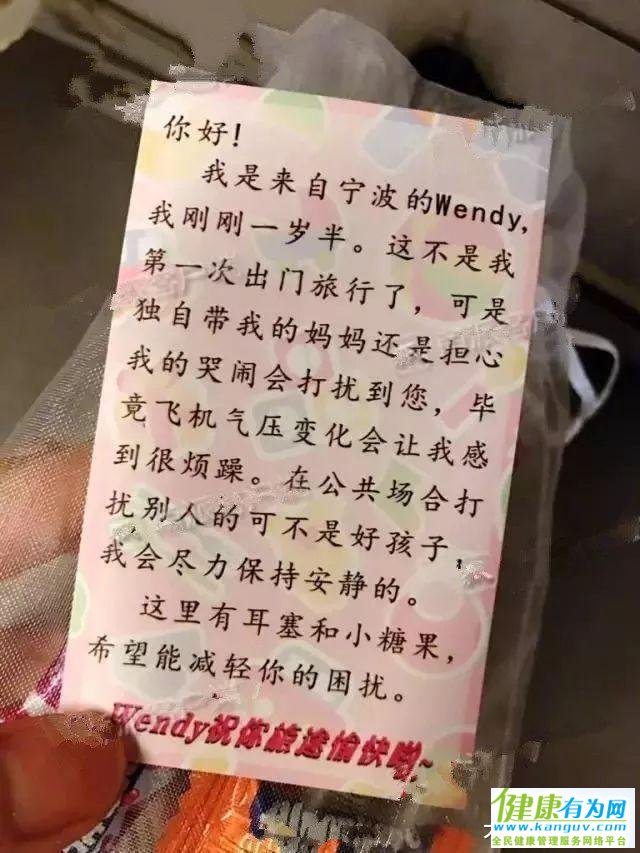 你好！
我是来自宁波的Wendy,
我刚刚一岁半。这不是我
第一次出门旅行了，可是
独自带我的妈妈还是担心
我的哭闹会打扰到您，毕
竟飞机气压变化会让我感
到很烦躁。在公共场合打
扰别人的可不是好孩子，
我会尽力保持安静的。
这里有耳塞和小糖果，
希望能减轻你的困扰。
Wendy祝你旅途愉快哟~
健康有为网
www.kanguv.com
全民健康管理服务网络平台